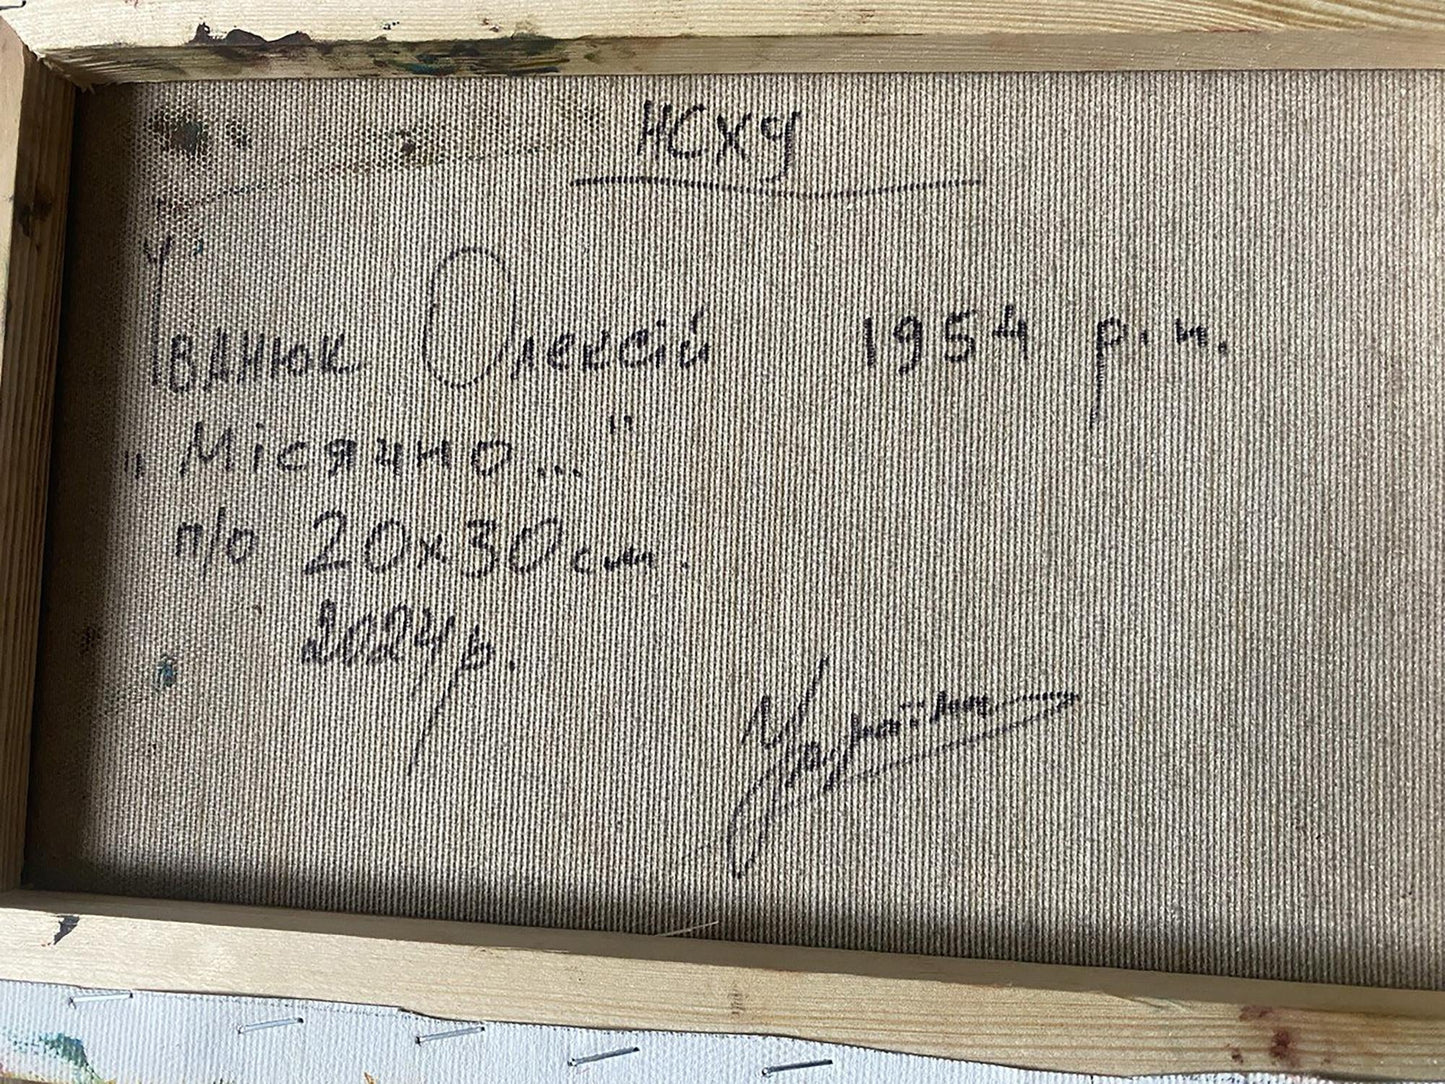 НСХУ
Іванюк Олексій 1954 р.н.
"Місячно..."
п/о 20х30см.
2024р.